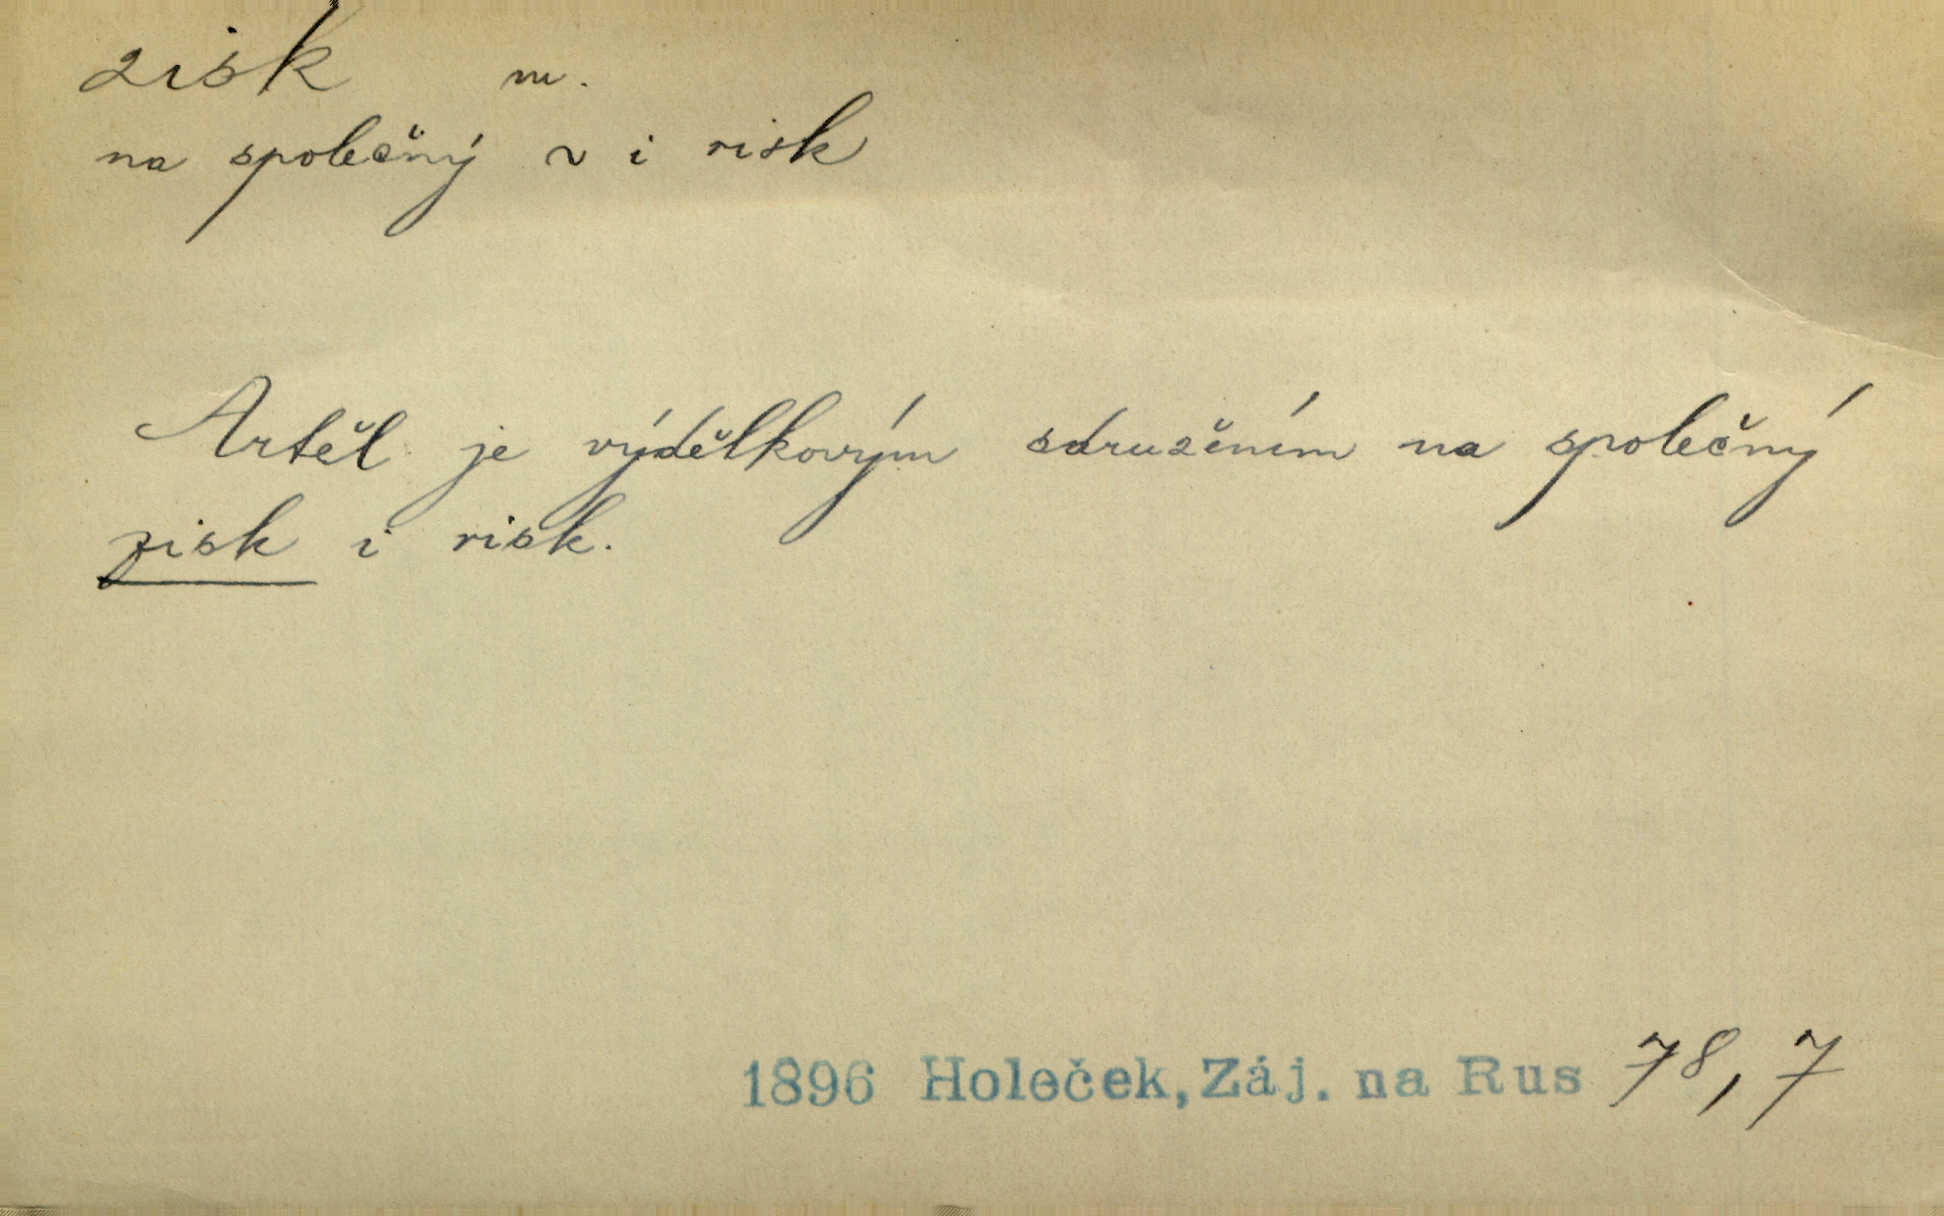 zisk m.
na společný ~ i risk
Artěl je výdělkovým sdružením na společný
zisk i risk.
1896 Holeček, Záj. na Rus 78, 7